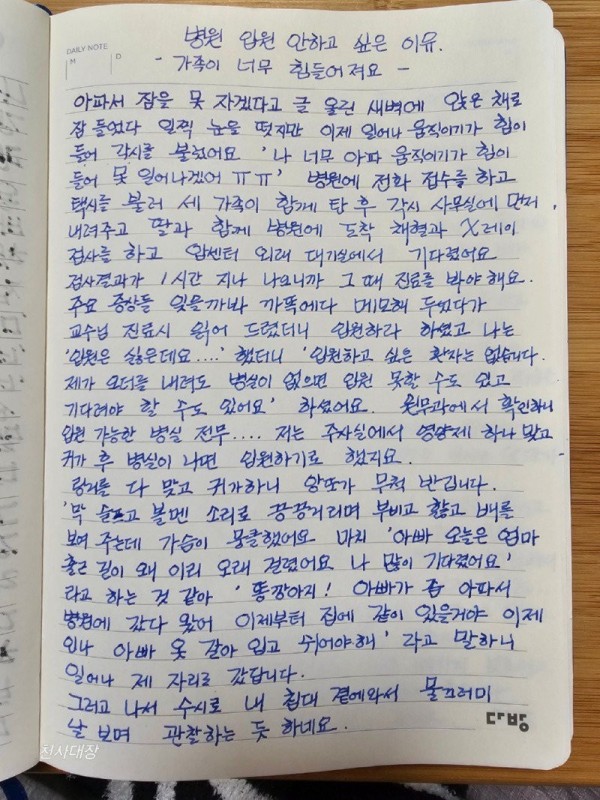 병원 입원 안하고 싶은 이유.
DAILY NOTE
M D
- 가족이 너무 힘들어져요 -
아파서 잠을 못 자겠다고 글 올린 새벽에 앉은 채로
잠 들었다 일찍 눈을 떴지만 이제 일어나 움직이기가 힘이
들어 각시를 불렀어요 '나 너무 아파 움직이기가 힘이
들어 못 일어나겠어 ㅠㅠ' 병원에 전화 접수를 하고
택시를 불러 세 가족이 함께 탄 후 각시 사무실에 먼저
내려주고 딸과 함께 병원에 도착 채혈과 X레이
검사를 하고 암센터 외래 대기실에서 기다렸어요
검사결과가 1시간 지나 나오니까 그 때 진료를 봐야 해요.
주요 증상들 잊을까봐 까똑에다 메모해 두었다가
교수님 진료시 읽어 드렸더니 입원하라 하셨고 나는
'입원은 싫은데요....' 했더니 '입원하고 싶은 환자는 없습니다.
제가 오더를 내려도 병실이 없으면 입원 못할 수도 있고
기다려야 할 수도 있어요' 하셨어요. 원무과에서 확인하니
입원 가능한 병실 전무.... 저는 주사실에서 영양제 하나 맞고
귀가 후 병실이 나면 입원하기로 했지요.
링거를 다 맞고 귀가하니 앙또가 무척 반깁니다.
'막 슬프고 볼멘 소리로 끙끙거리며 부비고 핥고 배를
보여 주는데 가슴이 뭉클했어요 마치 '아빠 오늘은 엄마
출근 길이 왜 이리 오래 걸렸어요 나 많이 기다렸어요'
라고 하는 것 같아 '똥깡아지! 아빠가 좀 아파서
병원에 갔다 왔어 이제부터 집에 같이 있을거야 이제
인나 아빠 옷 갈아 입고 쉬어야해' 라고 말하니
일어나 제 자리로 갔답니다.
그러고 나서 수시로 내 침대 곁에와서 물끄러미
날 보며 관찰하는 듯 하네요.
다방
친시대장